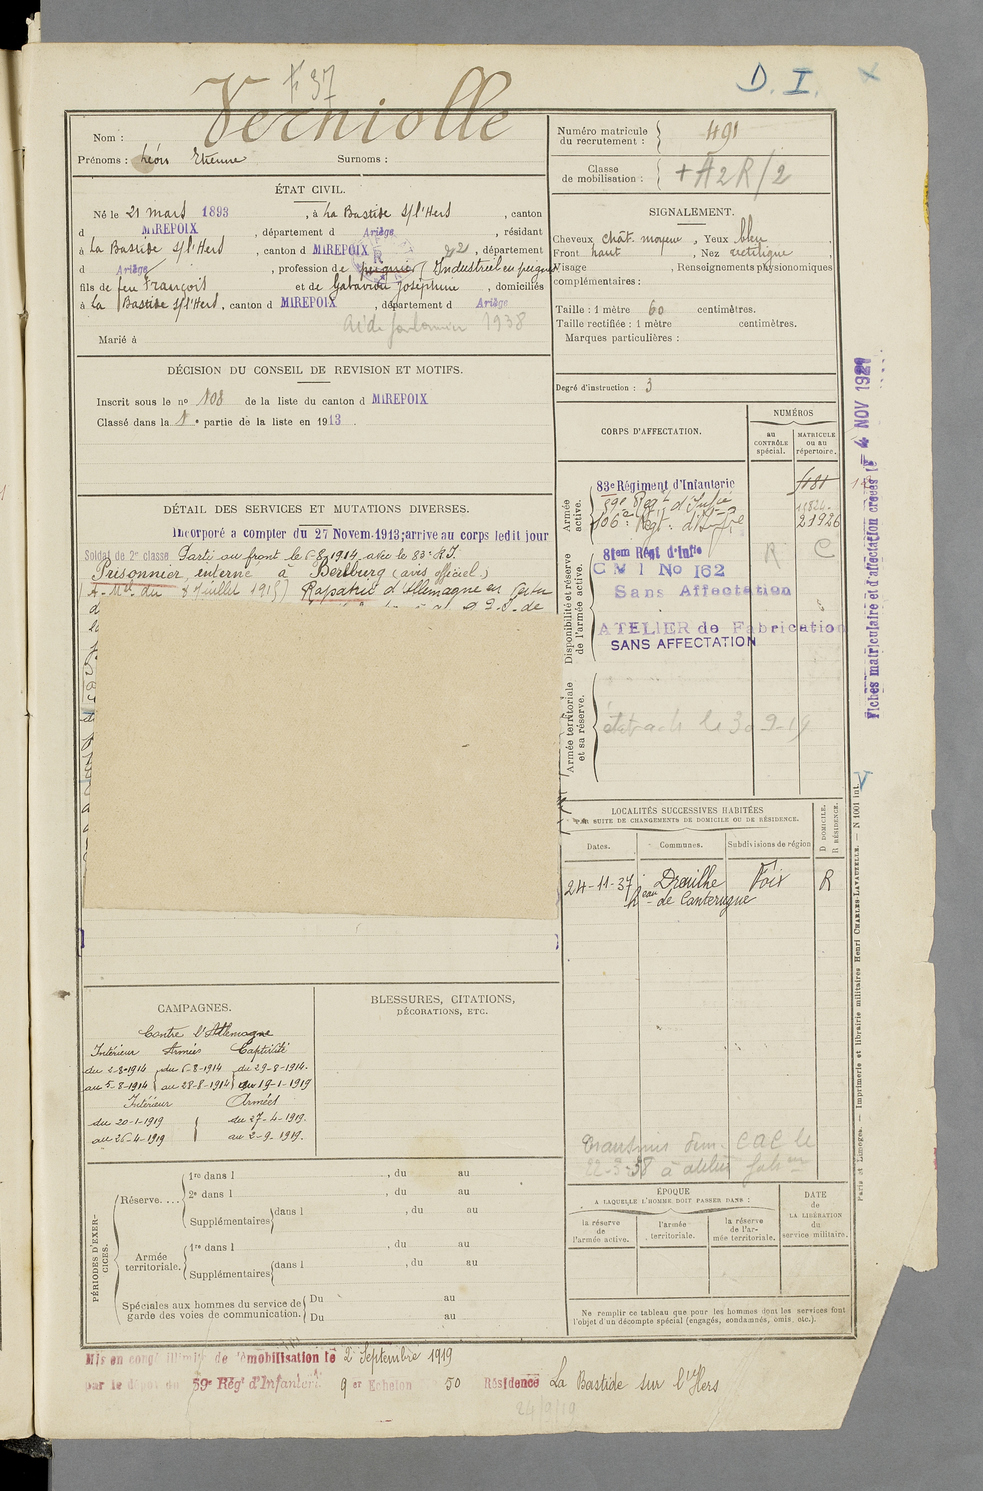 D. I.
Verniolle
Nom :
Prénoms : Léon Etienne Surnoms :
Numéro matricule du recrutement : 491
Classe de mobilisation :
ÉTAT CIVIL.
Né le 21 mars 1893, à La Bastide s/l'Hers, canton
d MIREPOIX, département d Ariège, résidant
à La Bastide s/l'Hers, canton d MIREPOIX, département
d Ariège, profession de Industriel en peignes
fils de feu François et de Gabarrou Joséphine, domiciliés
à La Bastide s/l'Hers, canton d MIREPOIX, département d Ariège
1938
Marié à
SIGNALEMENT.
Cheveux chât. moyen, Yeux bleu
Front haut, Nez rectiligne
Visage , Renseignements physionomiques
complémentaires :
Taille : 1 mètre 60 centimètres.
Taille rectifiée : 1 mètre centimètres.
Marques particulières :
Degré d'instruction : 3
DÉCISION DU CONSEIL DE REVISION ET MOTIFS.
Inscrit sous le no 108 de la liste du canton d MIREPOIX
Classé dans la 1e partie de la liste en 1913.
CORPS D'AFFECTATION.
NUMÉROS
au CONTRÔLE spécial.
MATRICULE ou au répertoire.
Armée active.
83e Régiment d'Infanterie
59e Régt d'Infie
106e Régt d'Infie
21926
Disponibilité et réserve de l'armée active.
81em Régt d'Infie
R C
C M I No 162
Sans Affectation
ATELIER de Fabrication
SANS AFFECTATION
Armée territoriale et sa réserve.
Fiches matriculaire et d'affectation créées le 4 NOV 1921
DÉTAIL DES SERVICES ET MUTATIONS DIVERSES.
Incorporé a compter du 27 Novem. 1913; arrive au corps ledit jour
Soldat de 2e classe Parti au front le 6-8-1914 avec le 83e R.I.
Prisonnier, interné à Berlburg (avis officiel)
Rapatrié d'Allemagne
LOCALITÉS SUCCESSIVES HABITÉES
PAR SUITE DE CHANGEMENTS DE DOMICILE OU DE RÉSIDENCE.
Dates. Communes. Subdivisions de région
D DOMICILE. R RÉSIDENCE.
24-11-37 Dreuilhe Foix R
heau de Canterugne
Paris et Limoges. — Imprimerie et librairie militaires Henri CHARLES-LAVAUZELLE. — N 1001 int.
CAMPAGNES.
Contre l'Allemagne
Intérieur Armées Captivité
du 2-8-1914 du 6-8-1914 du 29-8-1914.
au 5-8-1914 au 28-8-1914 au 19-1-1919
Intérieur Armées
du 20-1-1919 du 27-4-1919.
au 26-4-1919 au 2-9-1919.
BLESSURES, CITATIONS,
DÉCORATIONS, ETC.
PÉRIODES D'EXERCICES.
Réserve....
1re dans l , du au
2e dans l , du au
Supplémentaires dans l , du au
Armée territoriale.
1re dans l , du au
Supplémentaires dans l , du au
Spéciales aux hommes du service de garde des voies de communication.
Du au
Du au
ÉPOQUE
A LAQUELLE L'HOMME DOIT PASSER DANS :
la réserve de l'armée active.
l'armée territoriale.
la réserve de l'armée territoriale.
DATE de LA LIBÉRATION du service militaire.
Ne remplir ce tableau que pour les hommes dont les services font
l'objet d'un décompte spécial (engagés, condamnés, omis, etc.).
Mis en congé illimité de démobilisation le 2 Septembre 1919
par le dépôt du 59e Régt d'Infanterie 9er Echelon 50 Résidence La Bastide sur l'Hers